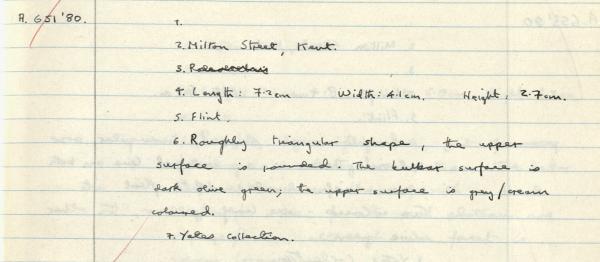 A. 651'80.
1.
2. Milton Street, Kent.
3.
4. Length: 7.2cm Width: 4.1cm. Height: 2.7cm.
5. Flint.
6. Roughly triangular shape, the upper
surface is rounded. The bulbar surface is
dark olive green; the upper surface is grey/cream
coloured.
7. Yates Collection.